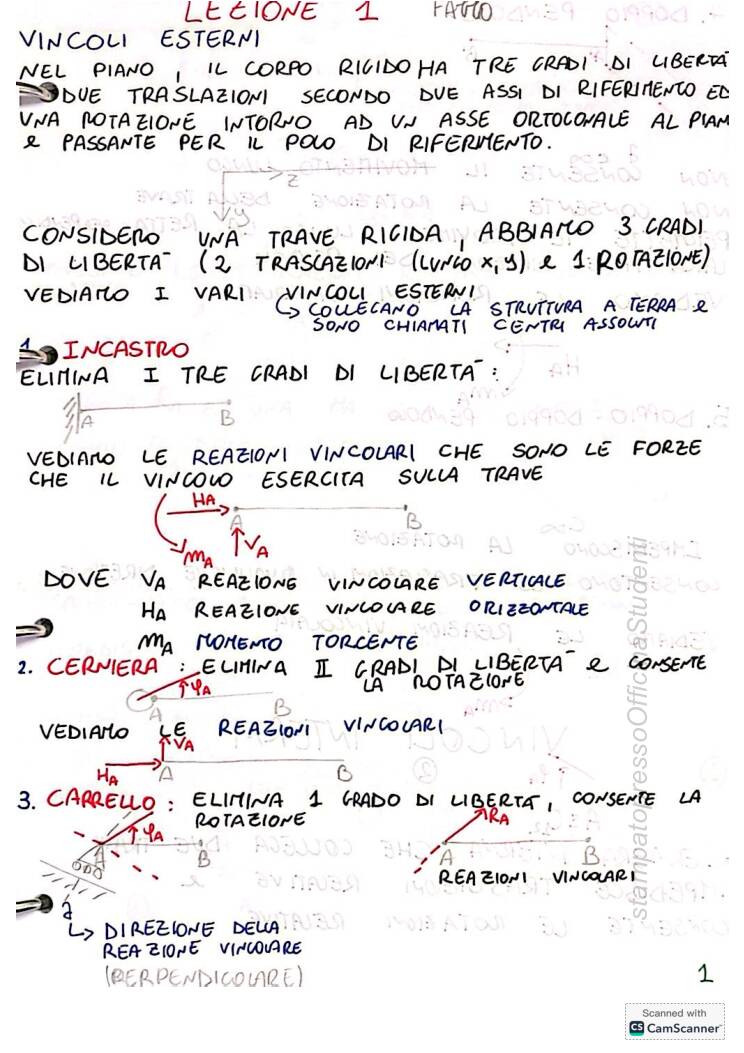 LEZIONE 1 FATTO
VINCOLI ESTERNI
NEL PIANO, IL CORPO RIGIDO HA TRE GRADI DI LIBERTÀ
DUE TRASLAZIONI SECONDO DUE ASSI DI RIFERIMENTO ED
UNA ROTAZIONE INTORNO AD UN ASSE ORTOGONALE AL PIAN
e PASSANTE PER IL POLO DI RIFERIMENTO.
z
y
CONSIDERO UNA TRAVE RIGIDA, ABBIAMO 3 GRADI
DI LIBERTÀ (2 TRASLAZIONI (LUNGO x, y) e 1 ROTAZIONE)
VEDIAMO I VARI VINCOLI ESTERNI
↳ COLLEGANO LA STRUTTURA A TERRA e
SONO CHIAMATI CENTRI ASSOLUTI
1. INCASTRO
ELIMINA I TRE GRADI DI LIBERTÀ:
A B
VEDIAMO LE REAZIONI VINCOLARI CHE SONO LE FORZE
CHE IL VINCOLO ESERCITA SULLA TRAVE
HA A B
mA VA
DOVE VA REAZIONE VINCOLARE VERTICALE
HA REAZIONE VINCOLARE ORIZZONTALE
mA MOMENTO TORCENTE
2. CERNIERA: ELIMINA II GRADI DI LIBERTÀ e CONSENTE
LA ROTAZIONE
φA
A B
VEDIAMO LE REAZIONI VINCOLARI
VA
HA A B
3. CARRELLO: ELIMINA 1 GRADO DI LIBERTÀ, CONSENTE LA
ROTAZIONE
A φA B
RA
A B
REAZIONI VINCOLARI
↳ DIREZIONE DELLA
REAZIONE VINCOLARE
(PERPENDICOLARE)
1
stampatopressoOfficinaStudenti
Scanned with
CS CamScanner